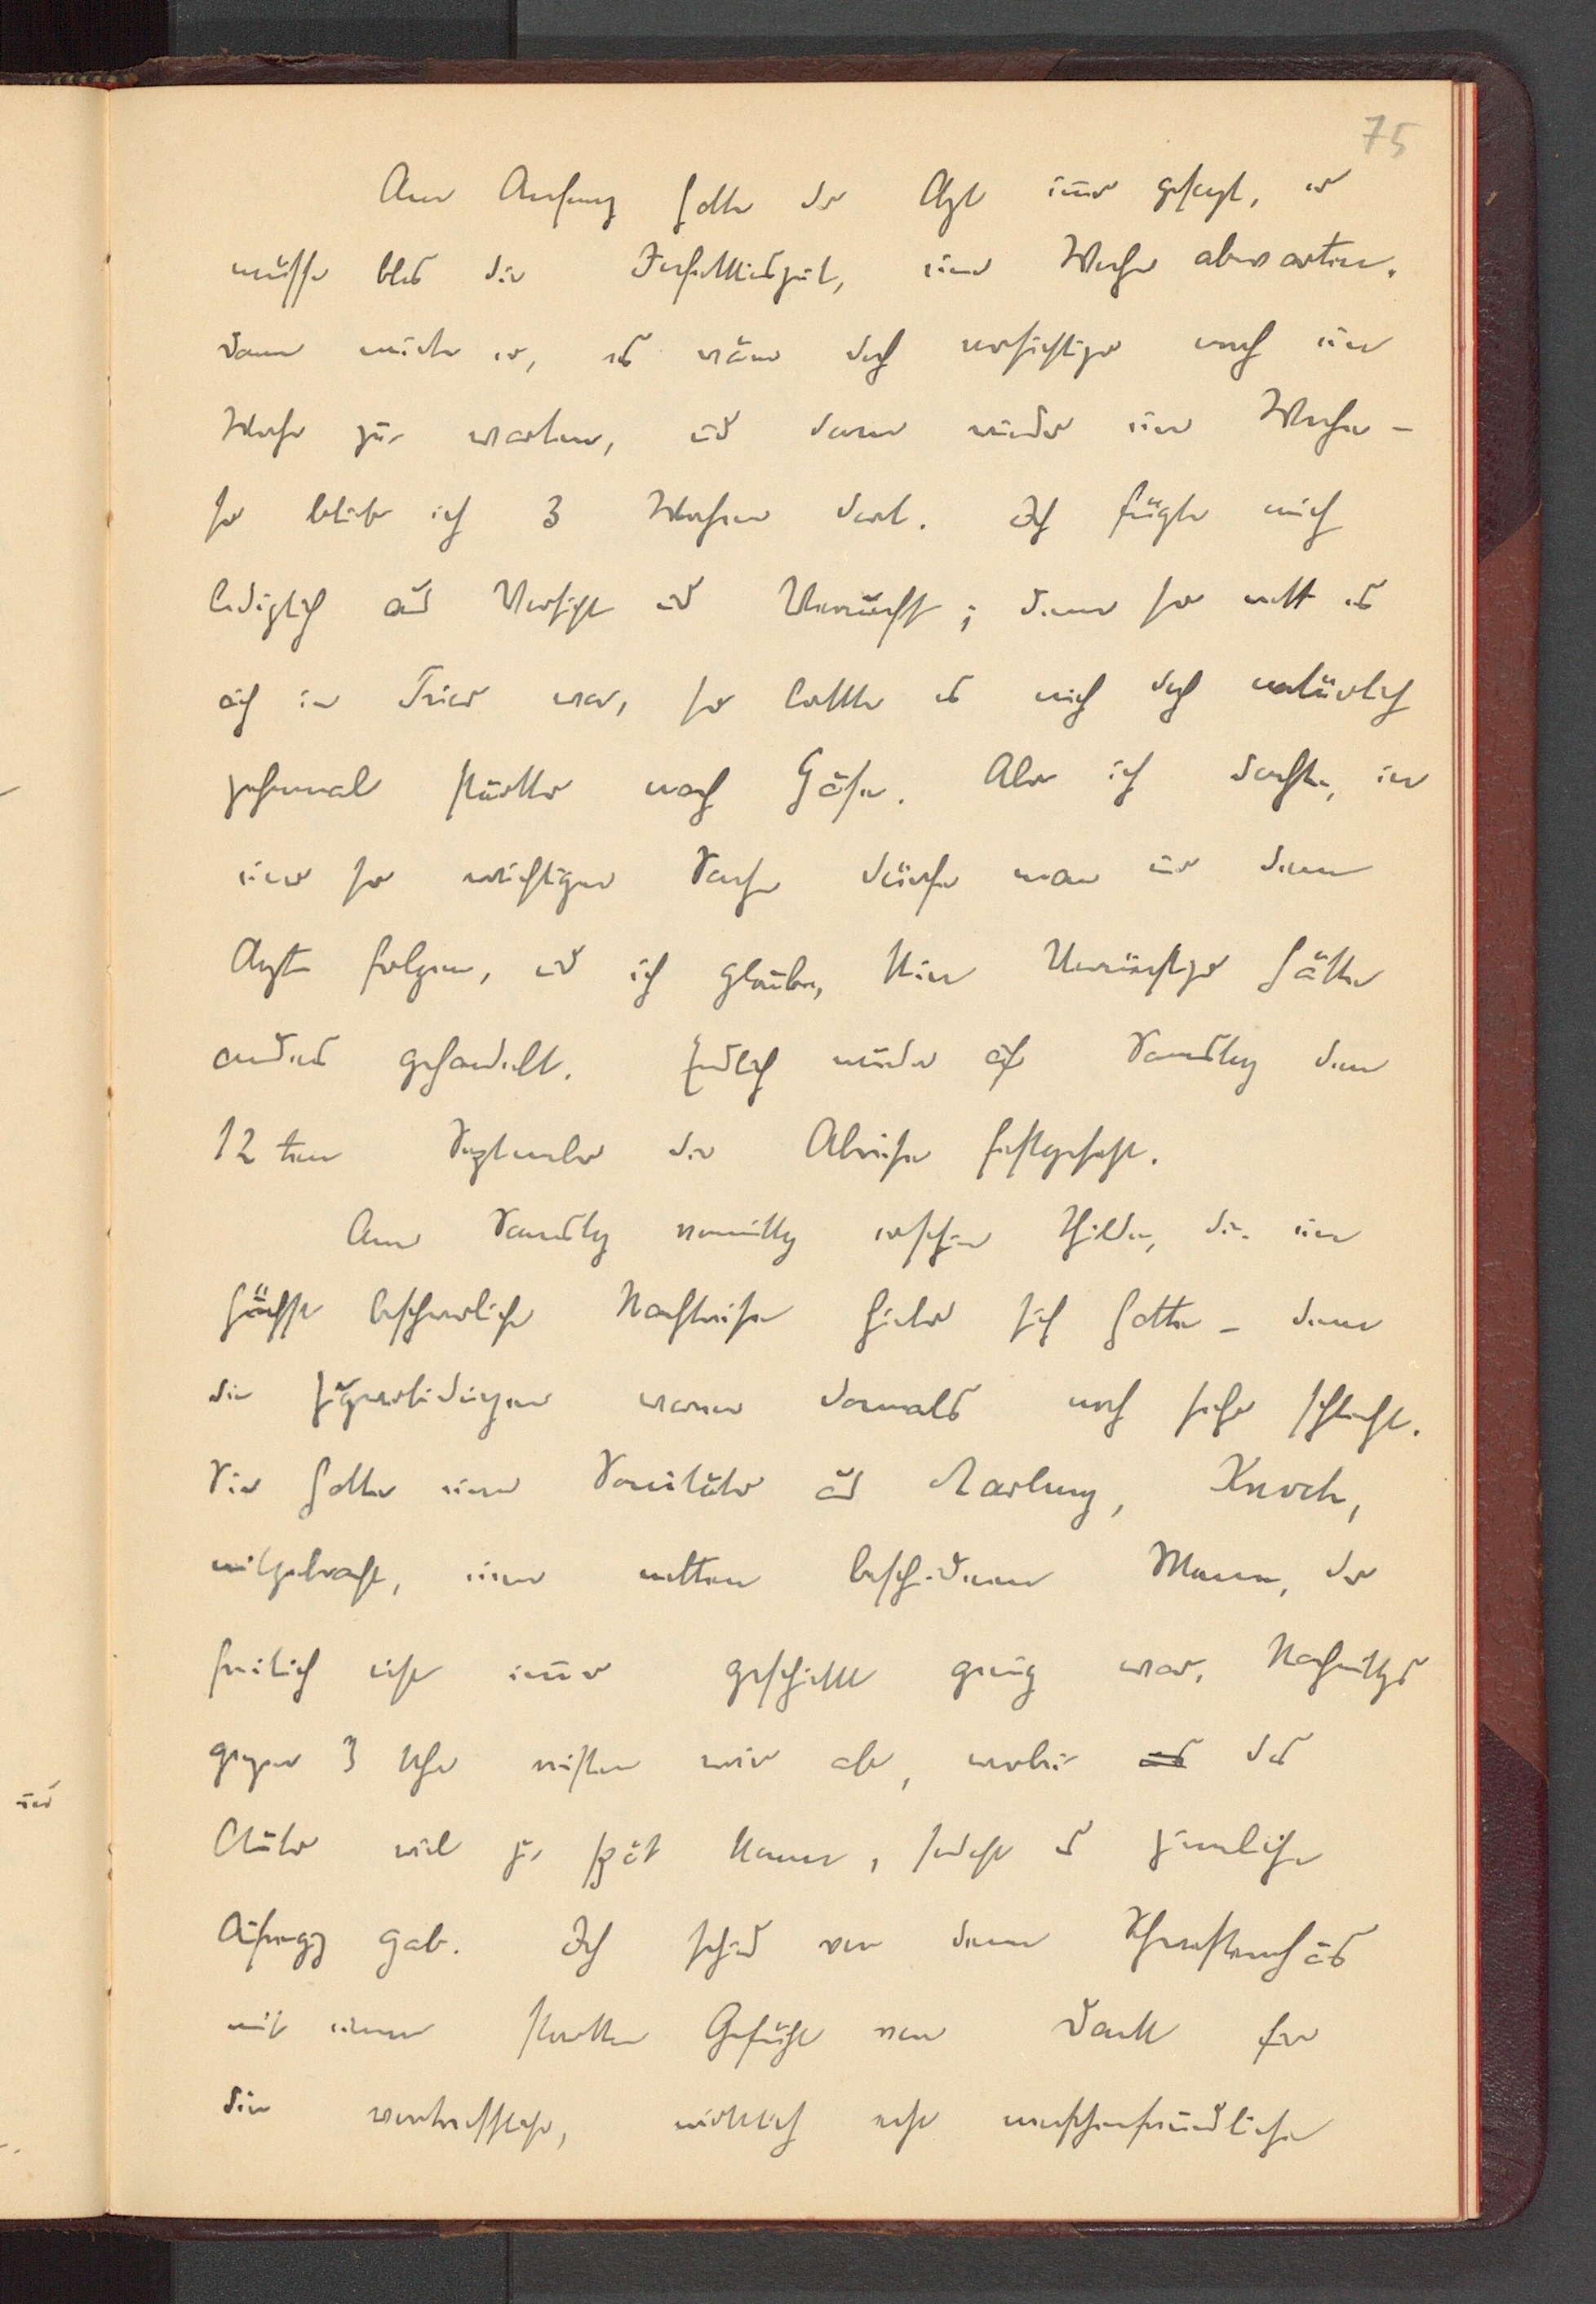 75
Am Anfang hatte der Arzt immer gesagt, er
müsse blos die Infektionszeit, eine Woche abwarten.
Dann meinte er, es wäre doch vorsichtiger noch eine
Woche zu warten, und dann wieder eine Woche –
so blieb ich 3 Wochen dort. Ich fügte mich
lediglich aus Vorsicht und Vernunft; denn so nett es
auch in Trier war, so lockte es mich doch natürlich
zehnmal stärker nach Hause. Aber ich dachte, in
einer so wichtigen Sache dürfe man nur dem
Arzte folgen, und ich glaube, kein Vernünftiger hätte
anders gehandelt. Endlich wurde auf Samstag den
12ten September die Abreise festgesetzt.
Am Samstag vormittag erschien Hilde, die eine
höchst beschwerliche Nachtreise hinter sich hatte – denn
die Zugverbindungen waren damals noch sehr schlecht.
Sie hatte einen Sanitäter aus Marburg, Knoch,
mitgebracht, einen netten bescheidenen Mann, der
freilich nicht immer geschickt genug war. Nachmittags
gegen 3 Uhr reisten wir ab, wobei es das
Auto viel zu spät kam, sodass es ziemliche
Aufregung gab. Ich schied von dem Schwesternhaus
mit einem starken Gefühl von Dank für
die vortreffliche, wirklich echt menschenfreundliche